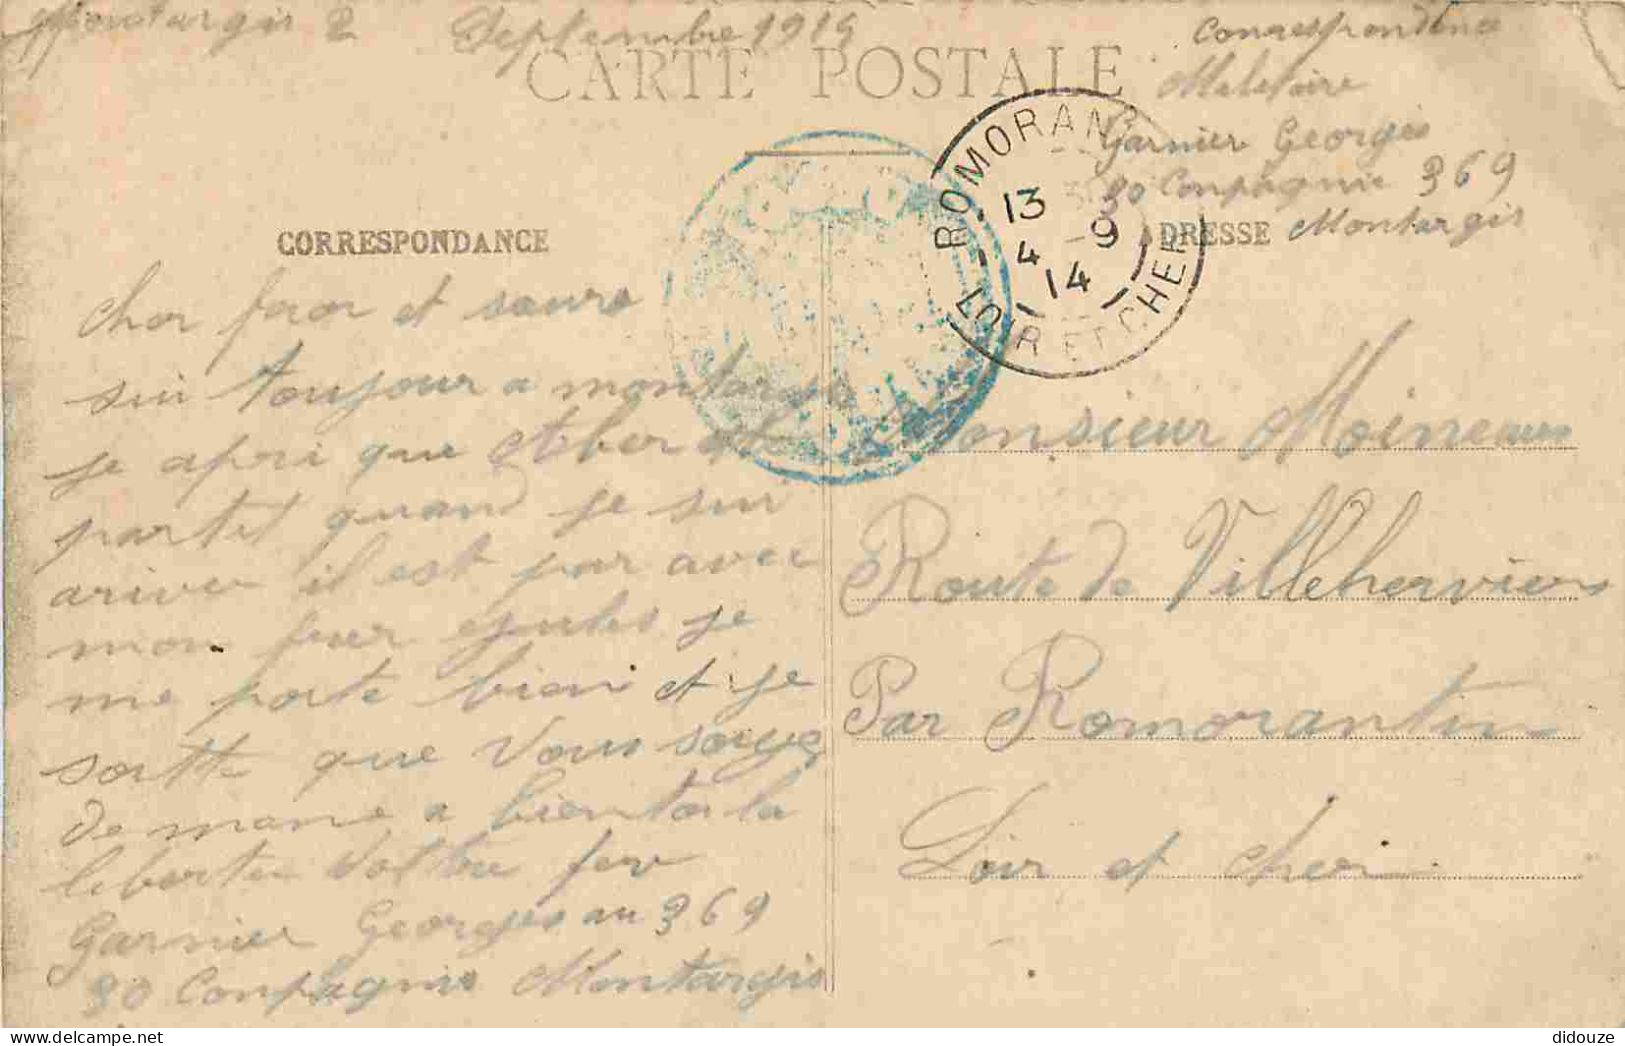 Montargis 2 Septembre 1914
CARTE POSTALE
Correspondence
Melitaire
Garnier Georges
30 Conpagnie 369
Montargis
ROMORAN
13
4 - 9
14
LOIR ET CHER
CORRESPONDANCE
DRESSE
cher frer et seure
sui toujour a montargis
je apri que
partet quand je sui
ariver il est par avec
mon frer je
me porte bien et je
soitte que vous soiye
de meme a biento la
liberter vottre frer
Garnier Georges au 369
30 Conpagnie Montargis
Monsieur Moineaux
Route de Villeherviers
Par Romorantin
Loir et cher
didouze